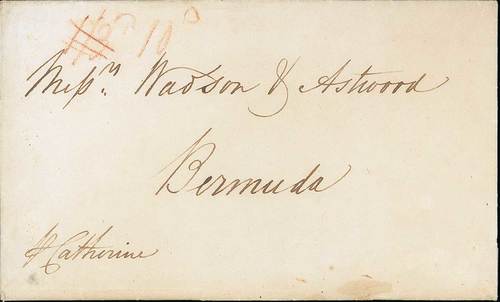 10
Messrs. Wadson & Astwood
Bermuda
Catherine